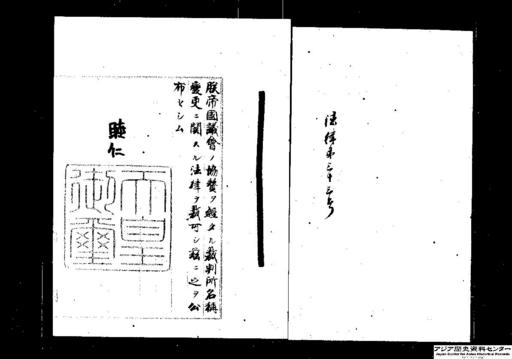 法律第三十三号
朕帝國議會ノ協賛ヲ經タル裁判所名稱
變更ニ關スル法律ヲ裁可シ茲ニ之ヲ公
布セシム
睦仁
天皇御璽
アジア歴史資料センター
Japan Center for Asian Historical Records